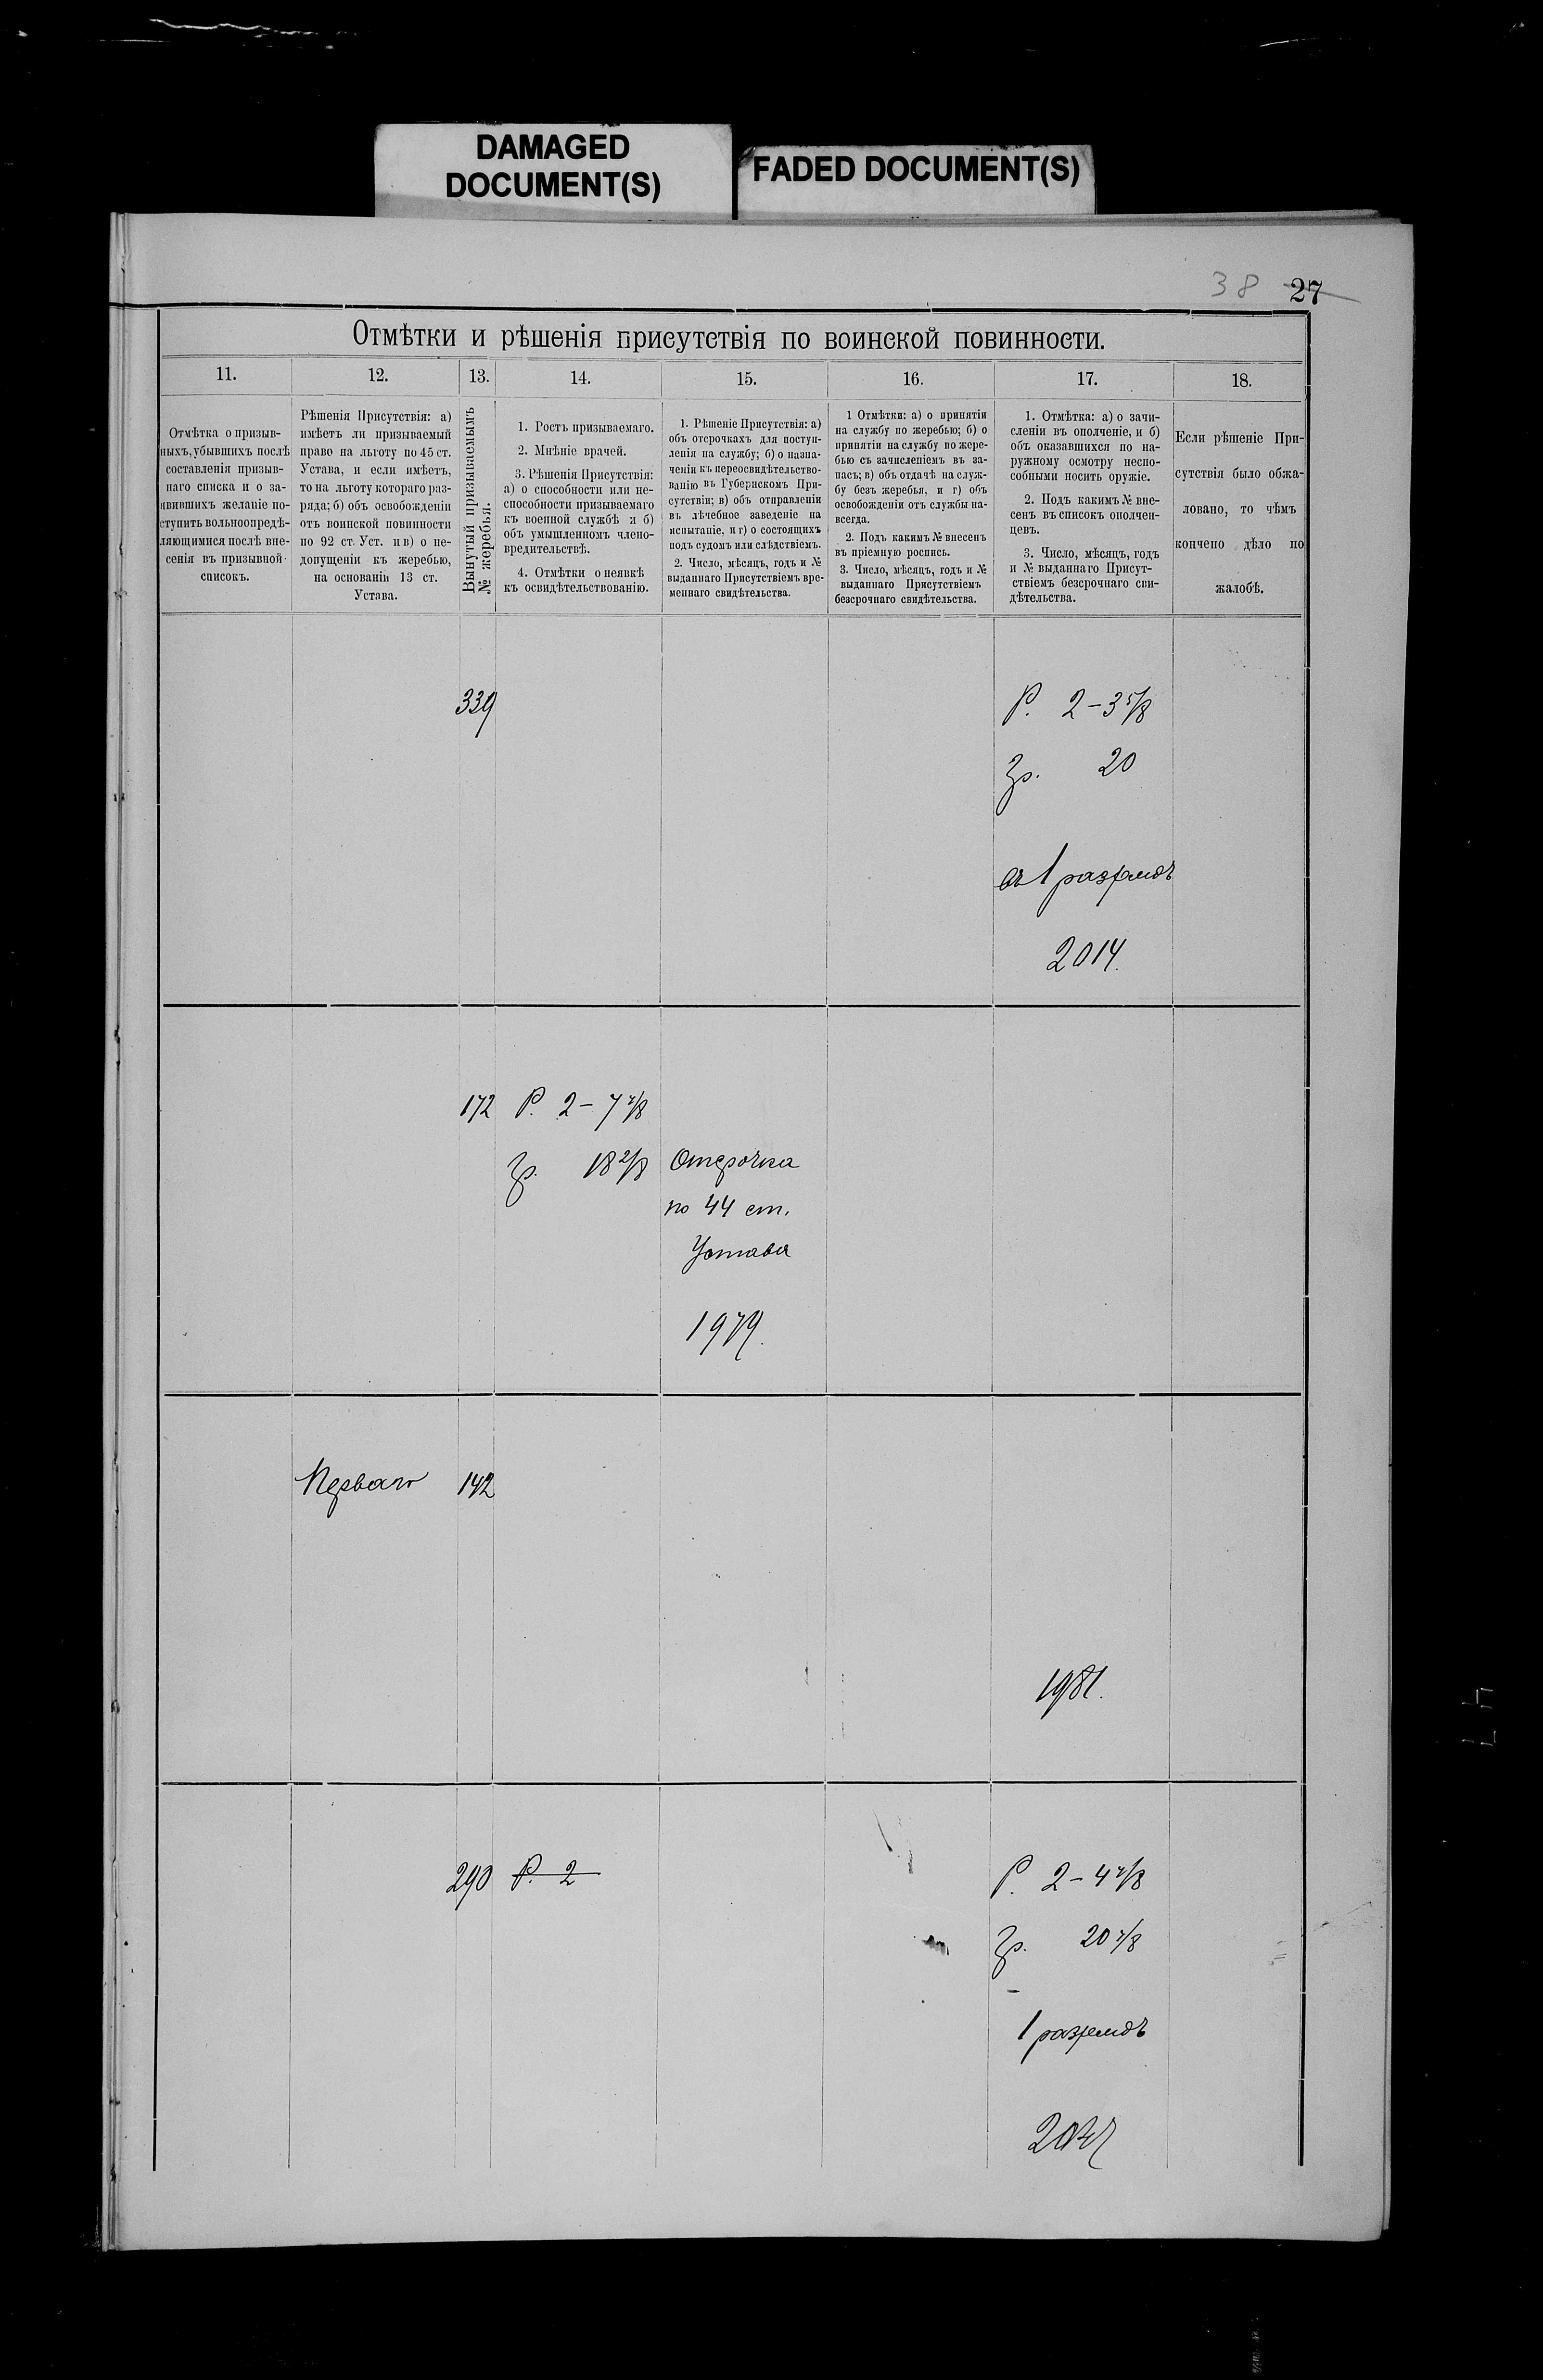 DAMAGED
DOCUMENT(S)
FADED DOCUMENT(S)
38 27
Отмѣтки и рѣшенія присутствія по воинской повинности.
11.
12.
13.
14.
15.
16.
17.
18.
Отмѣтка о призыв-
ныхъ, убывшихъ послѣ
составленія призыв-
наго списка и о за-
явившихъ желаніе по-
ступить вольноопредѣ-
ляющимися послѣ вне-
сенія въ призывной
списокъ.
Рѣшенія Присутствія: а)
имѣетъ ли призываемый
право на льготу по 45 ст.
Устава, и если имѣетъ,
то на льготу котораго раз-
ряда; б) объ освобожденіи
отъ воинской повинности
по 92 ст. Уст. и в) о не-
допущеніи къ жеребью,
на основаніи 13 ст.
Устава.
Вынутый призываемымъ
№ жеребья.
1. Ростъ призываемаго.
2. Мнѣніе врачей.
3. Рѣшенія Присутствія:
а) о способности или не-
способности призываемаго
къ военной службѣ и б)
объ умышленномъ члено-
вредительствѣ.
4. Отмѣтки о неявкѣ
къ освидѣтельствованію.
1. Рѣшеніе Присутствія: а)
объ отсрочкахъ для поступ-
ленія на службу; б) о назна-
ченіи къ переосвидѣтельство-
ванію въ Губернскомъ При-
сутствіи; в) объ отправленіи
въ лѣчебное заведеніе на
испытаніе, и г) о состоящихъ
подъ судомъ или слѣдствіемъ.
2. Число, мѣсяцъ, годъ и №
выданнаго Присутствіемъ вре-
меннаго свидѣтельства.
1 Отмѣтки: а) о принятіи
на службу по жеребью; б) о
принятіи на службу по жере-
бью съ зачисленіемъ въ за-
пасъ; в) объ отдачѣ на служ-
бу безъ жеребья, и г) объ
освобожденіи отъ службы на-
всегда.
2. Подъ какимъ № внесенъ
въ пріемную роспись.
3. Число, мѣсяцъ, годъ и №
выданнаго Присутствіемъ
безсрочнаго свидѣтельства.
1. Отмѣтка: а) о зачи-
сленіи въ ополченіе, и б)
объ оказавшихся по на-
ружному осмотру неспо-
собными носить оружіе.
2. Подъ какимъ № вне-
сенъ въ списокъ ополчен-
цевъ.
3. Число, мѣсяцъ, годъ
и № выданнаго Присут-
ствіемъ безсрочнаго сви-
дѣтельства.
Если рѣшеніе При-
сутствія было обжа-
ловано, то чѣмъ
кончено дѣло по
жалобѣ.
339
Р. 2–3 5/8
Гр. 20
въ 1 разрядъ
2014.
172 Р. 2–7
Гр. 18 2/8
Отсрочка
по 44 ст.
Устава
1979.
Перваго 142
1981.
290 Р. 2
Р. 2–4
Гр. 20
1 разрядъ